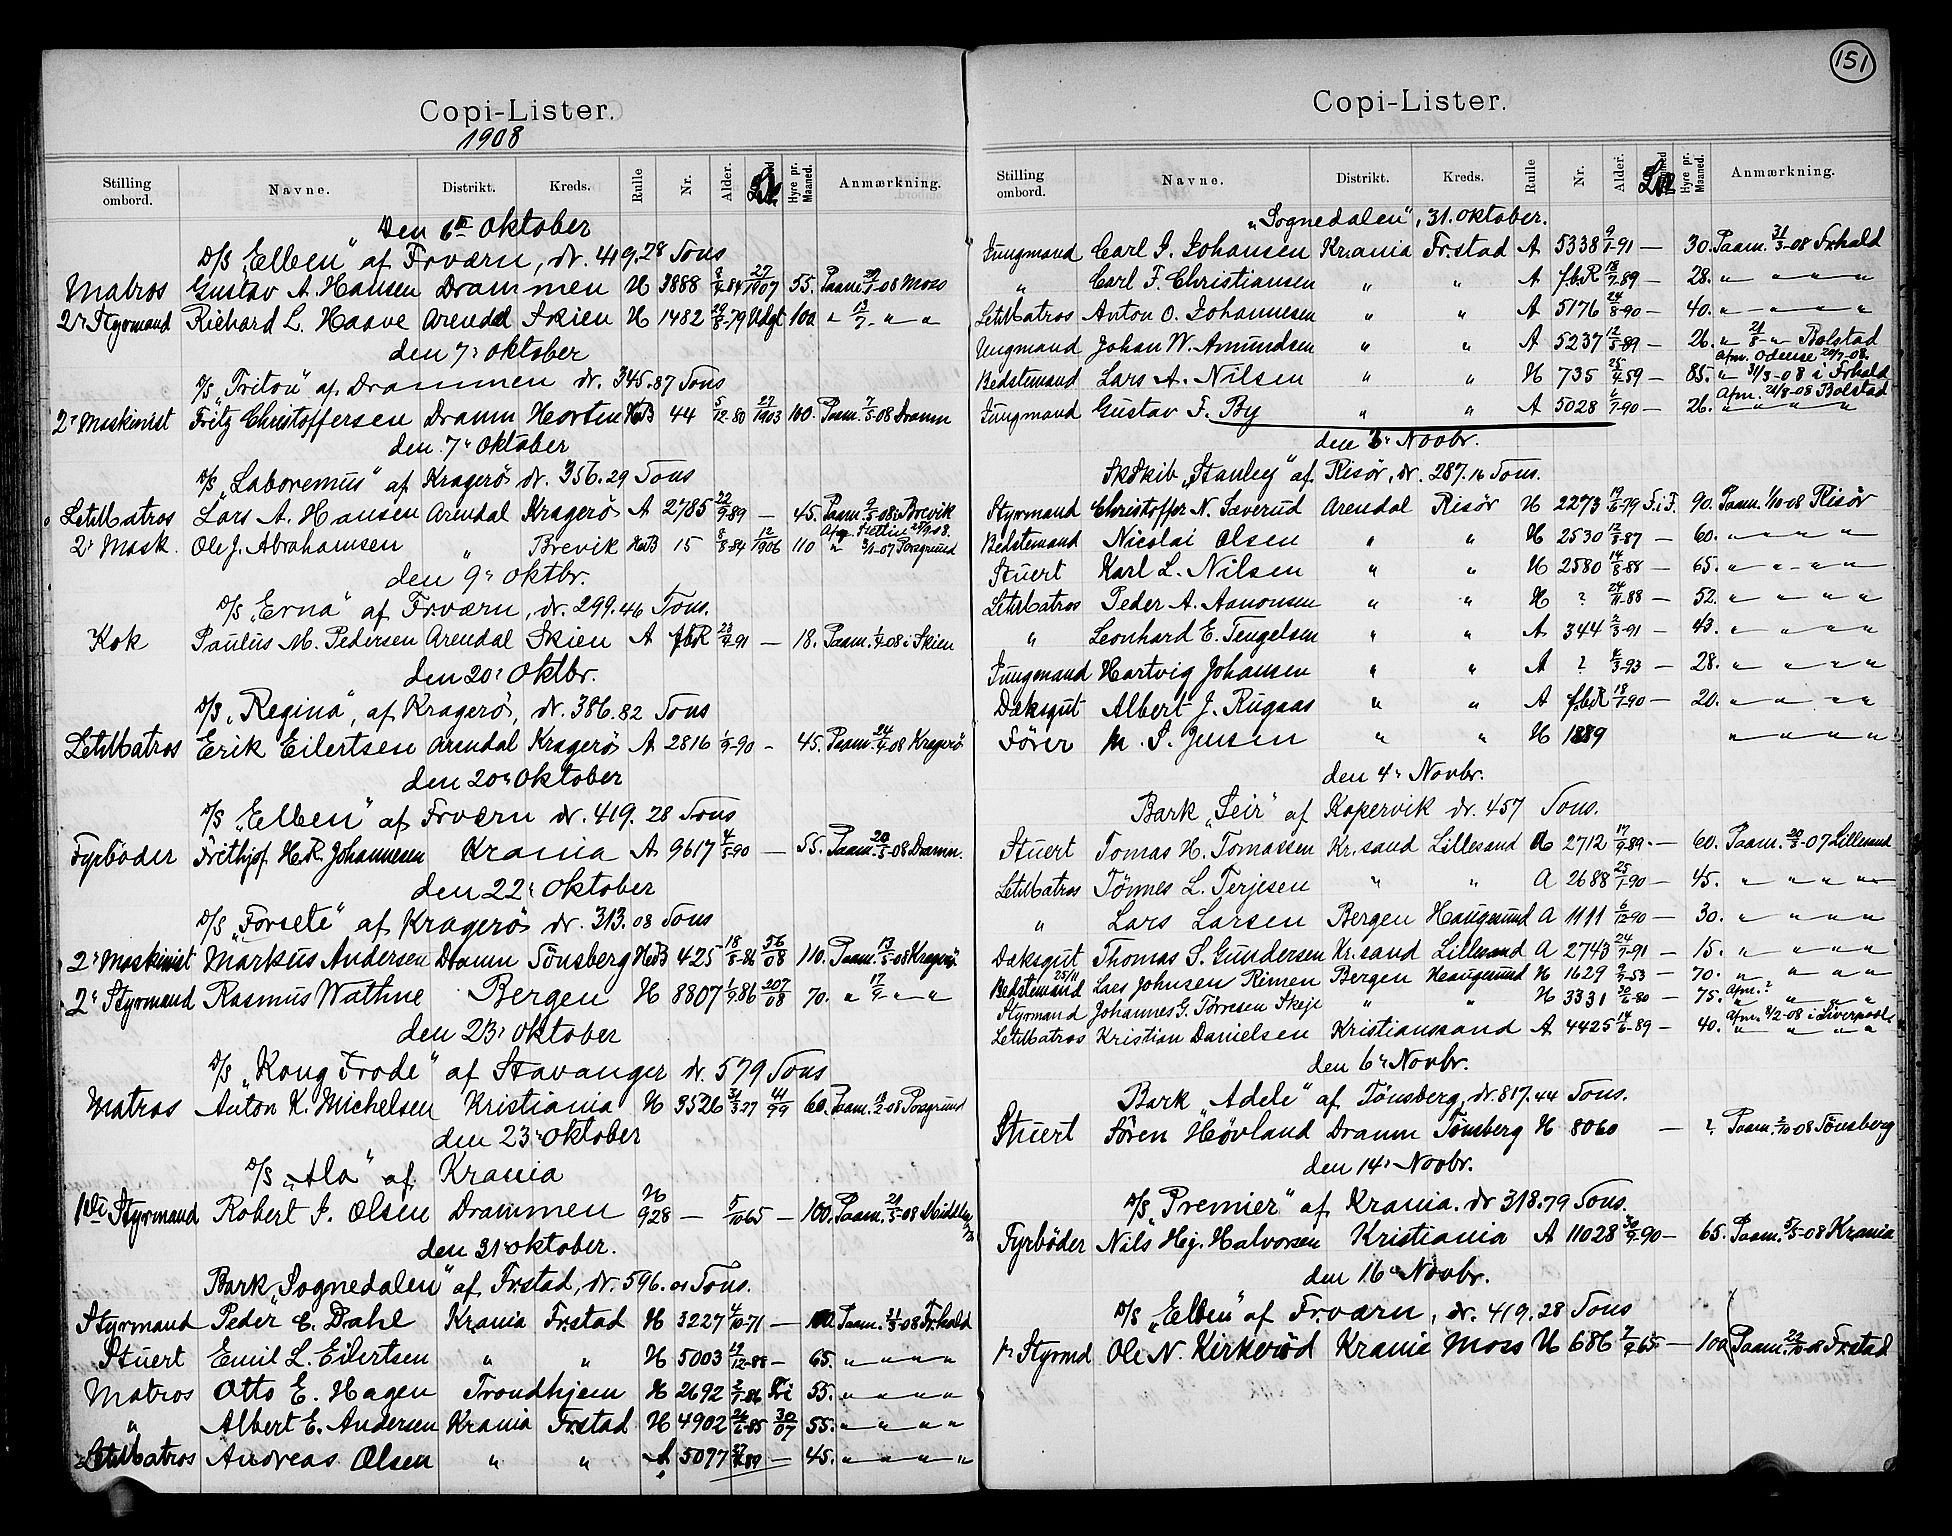 Copi-Lister.
1908
Stilling ombord. Navne. Distrikt. Kreds. Rulle Nr. Alder. Hyre pr. Maaned. Anmærkning.
Den 6te Oktober
D/S „Elben" af Frværn, dr. 419.28 Tons
Matros Gustav A. Hansen Drammen H 3888 84 27/1907 55. Paam. 08 Moss
2r Styrmand Richard L. Haave Arendal Skien H 1482 79 Udgt 100 „ „ „
den 7r Oktober
D/S „Triton" af Drammen dr. 345.87 Tons
2r Maskinist Fritz Christoffersen Dramn Horten HdB 44 5/12-80 27/1903 100. Paam. 7/5-08 Dramn
den 7r Oktober
D/S „Laboremus" af Kragerö dr. 356.29 Tons
LetMatros Lars A. Hansen Arendal Kragerö A 2785 22/9-89 — 45. Paam. 9/5-08 i Brevik
2r Mask. Ole J. Abrahamsen „ Brevik HdB 15 84 12/1906 110 „ 07 Porsgrund
den 9r Oktbr.
D/S „Erna" af Frværn, dr. 299.46 Tons.
Kok Paulus M. Pedersen Arendal Skien A fbR 23/9-91 — 18. Paam. 08 i Skien
den 20r Oktbr.
D/S „Regina", af Kragerö, dr. 386.82 Tons
LetMatros Erik Eilertsen Arendal Kragerö A 2816 90 - 45. Paam. 24/4-08 Kragerö
den 20r Oktober
D/S „Elben" af Frværn dr. 419.28 Tons
Fyrböder Frithjof H.R. Johannesen Krania A 9617 4/5-90 — 55. Paam. 20/5-08 Dramn.
den 22r Oktober
D/S „Forsete" af Kragerö dr. 313.08 Tons
2r Maskinist Markus Andersen Dramn Tönsberg HdB 425 18/8-86 56/08 110. Paam. 13/5-08 Kragerö
2r Styrmand Rasmus Wathne Bergen H 8807 1/9-86 207/08 70. „ 17/9 „ „
den 23r Oktober
D/S „Kong Frode" af Stavanger dr. 579 Tons
Matros Anton K. Michelsen Kristiania H 3526 77 44/99 60. Paam. 08 Porsgrund
den 23r Oktober
D/S „Ala" af Krania
1ste Styrmand Robert I. Olsen Drammen H 928 — 5/10-65 — 100. Paam. 21/5-08
den 31r Oktober.
Bark „Sognedalen" af Frstad, dr. 596.01 Tons.
Styrmand Peder C. Dahl Krania Frstad H 3227 4/10-71 — 100 Paam. 31/3-08 Frhald
Stuert Emil L. Eilertsen „ „ H 5003 19/12-88 — 65. „ „ „ „
Matros Otto E. Hagen Trondhjem H 2692 86 55. „ „ „ „
„ Albert E. Andersen Krania Frstad H 4902 85 30/07 55. „ „ „ „
LetMatros Andreas Olsen „ „ A 5077 89 — 45. „ „ „ „
151
Copi-Lister.
Stilling ombord. Navne. Distrikt. Kreds. Rulle Nr. Alder. Hyre pr. Maaned. Anmærkning.
„Sognedalen", 31. Oktober.
Jungmand Carl J. Johansen Krania Frstad A 5338 9/1-91 — 30. Paam. 31/3-08 Frhald
„ Carl F. Christiansen „ „ A fbR 18/7-89 — 28. „ „ „ „
LetMatros Anton O. Johannesen „ „ A 5176 24/8-90 — 40. „ „ „ „
Ungmand Johan W. Amundsen „ „ A 5237 12/5-89 — 26. „ 21/8 „ Bolstad
Afm. Odense 08.
Bedstemand Lars A. Nilsen „ „ H 735 59 — 85. „ 31/3-08 i Frhald
Afm. 21/8-08 Bolstad
Jungmand Gustav F. By „ „ A 5028 90 — 26. „ „ „ „
den 3r Novbr.
SkSkib „Stanley" af Risör, dr. 287.16 Tons.
Styrmand Christoffer N. Sæverud Arendal Risör H 2273 79 S.i F. 90. Paam. 1/10-08 Risör
Bedstemand Nicolai Olsen „ „ H 2530 12/8-87 — 60. „ „ „ „
Stuert Karl L. Nilsen „ „ H 2580 14/8-88 — 65. „ „ „ „
LetMatros Peder A. Aanonsen „ „ H ? 24/11-88 — 52. „ „ „ „
„ Leonhard E. Tengelsen „ „ A 344 2/3-91 — 43. „ „ „ „
Jungmand Hartvig Johansen „ „ A ? 4/3-93 — 28. „ „ „ „
Dæksgut Albert J. Rugaas „ „ A fbR 18/7-90 — 20. „ „ „ „
Förer M. S. Jensen „ „ H 1889 „ „ „ „
den 4r Novbr.
Bark „Seir" af Kopervik dr. 457 Tons.
Stuert Tomas H. Tomassen Kr.sand Lillesand A 2712 17/9-89 — 60. Paam. 07 Lillesand
LetMatros Tönnes L. Terjesen „ „ A 2688 25/1-90 — 45. „ „ „ „
„ Lars Larsen Bergen Haugesund A 1111 6/12-90 — 30. „ „ „ „
Dæksgut Thomas S. Gundersen Kr.sand Lillesand A 2743 24/7-91 — 15. „ „ „ „
Bedstemand 25/11 Lars Johnsen Rimen Bergen Haugesund H 1629 53 — 70. „ „ „ „
Afm. ?
Styrmand Johannes G. Torresen Skeje „ „ H 3331 80 — 75. „ „ „ „
Afm. 2-08 i Liverpool
LetMatros Kristian Danielsen Kristianssand A 4425 14/6-89 — 40. „ „ „ „
den 6r Novbr.
Bark „Adele" af Tönsberg, dr. 817.44 Tons.
Stuert Sören Hövland Dramn Tönsberg H 8060 — ? Paam. 2/10-08 Tönsberg
den 14r Novbr.
D/S „Premier" af Krania. dr 318.79 Tons.
Fyrböder Nils Hj. Halvorsen Kristiania A 11028 30/9-90 — 65. Paam. 5/5-08 Krania
den 16r Novbr.
D/S „Elben" af Frværn, dr. 419.28 Tons
1r Styrmd Ole N. Kirkeröd Krania Moss H 686 7/9-65 — 100 Paam. 08 Frstad